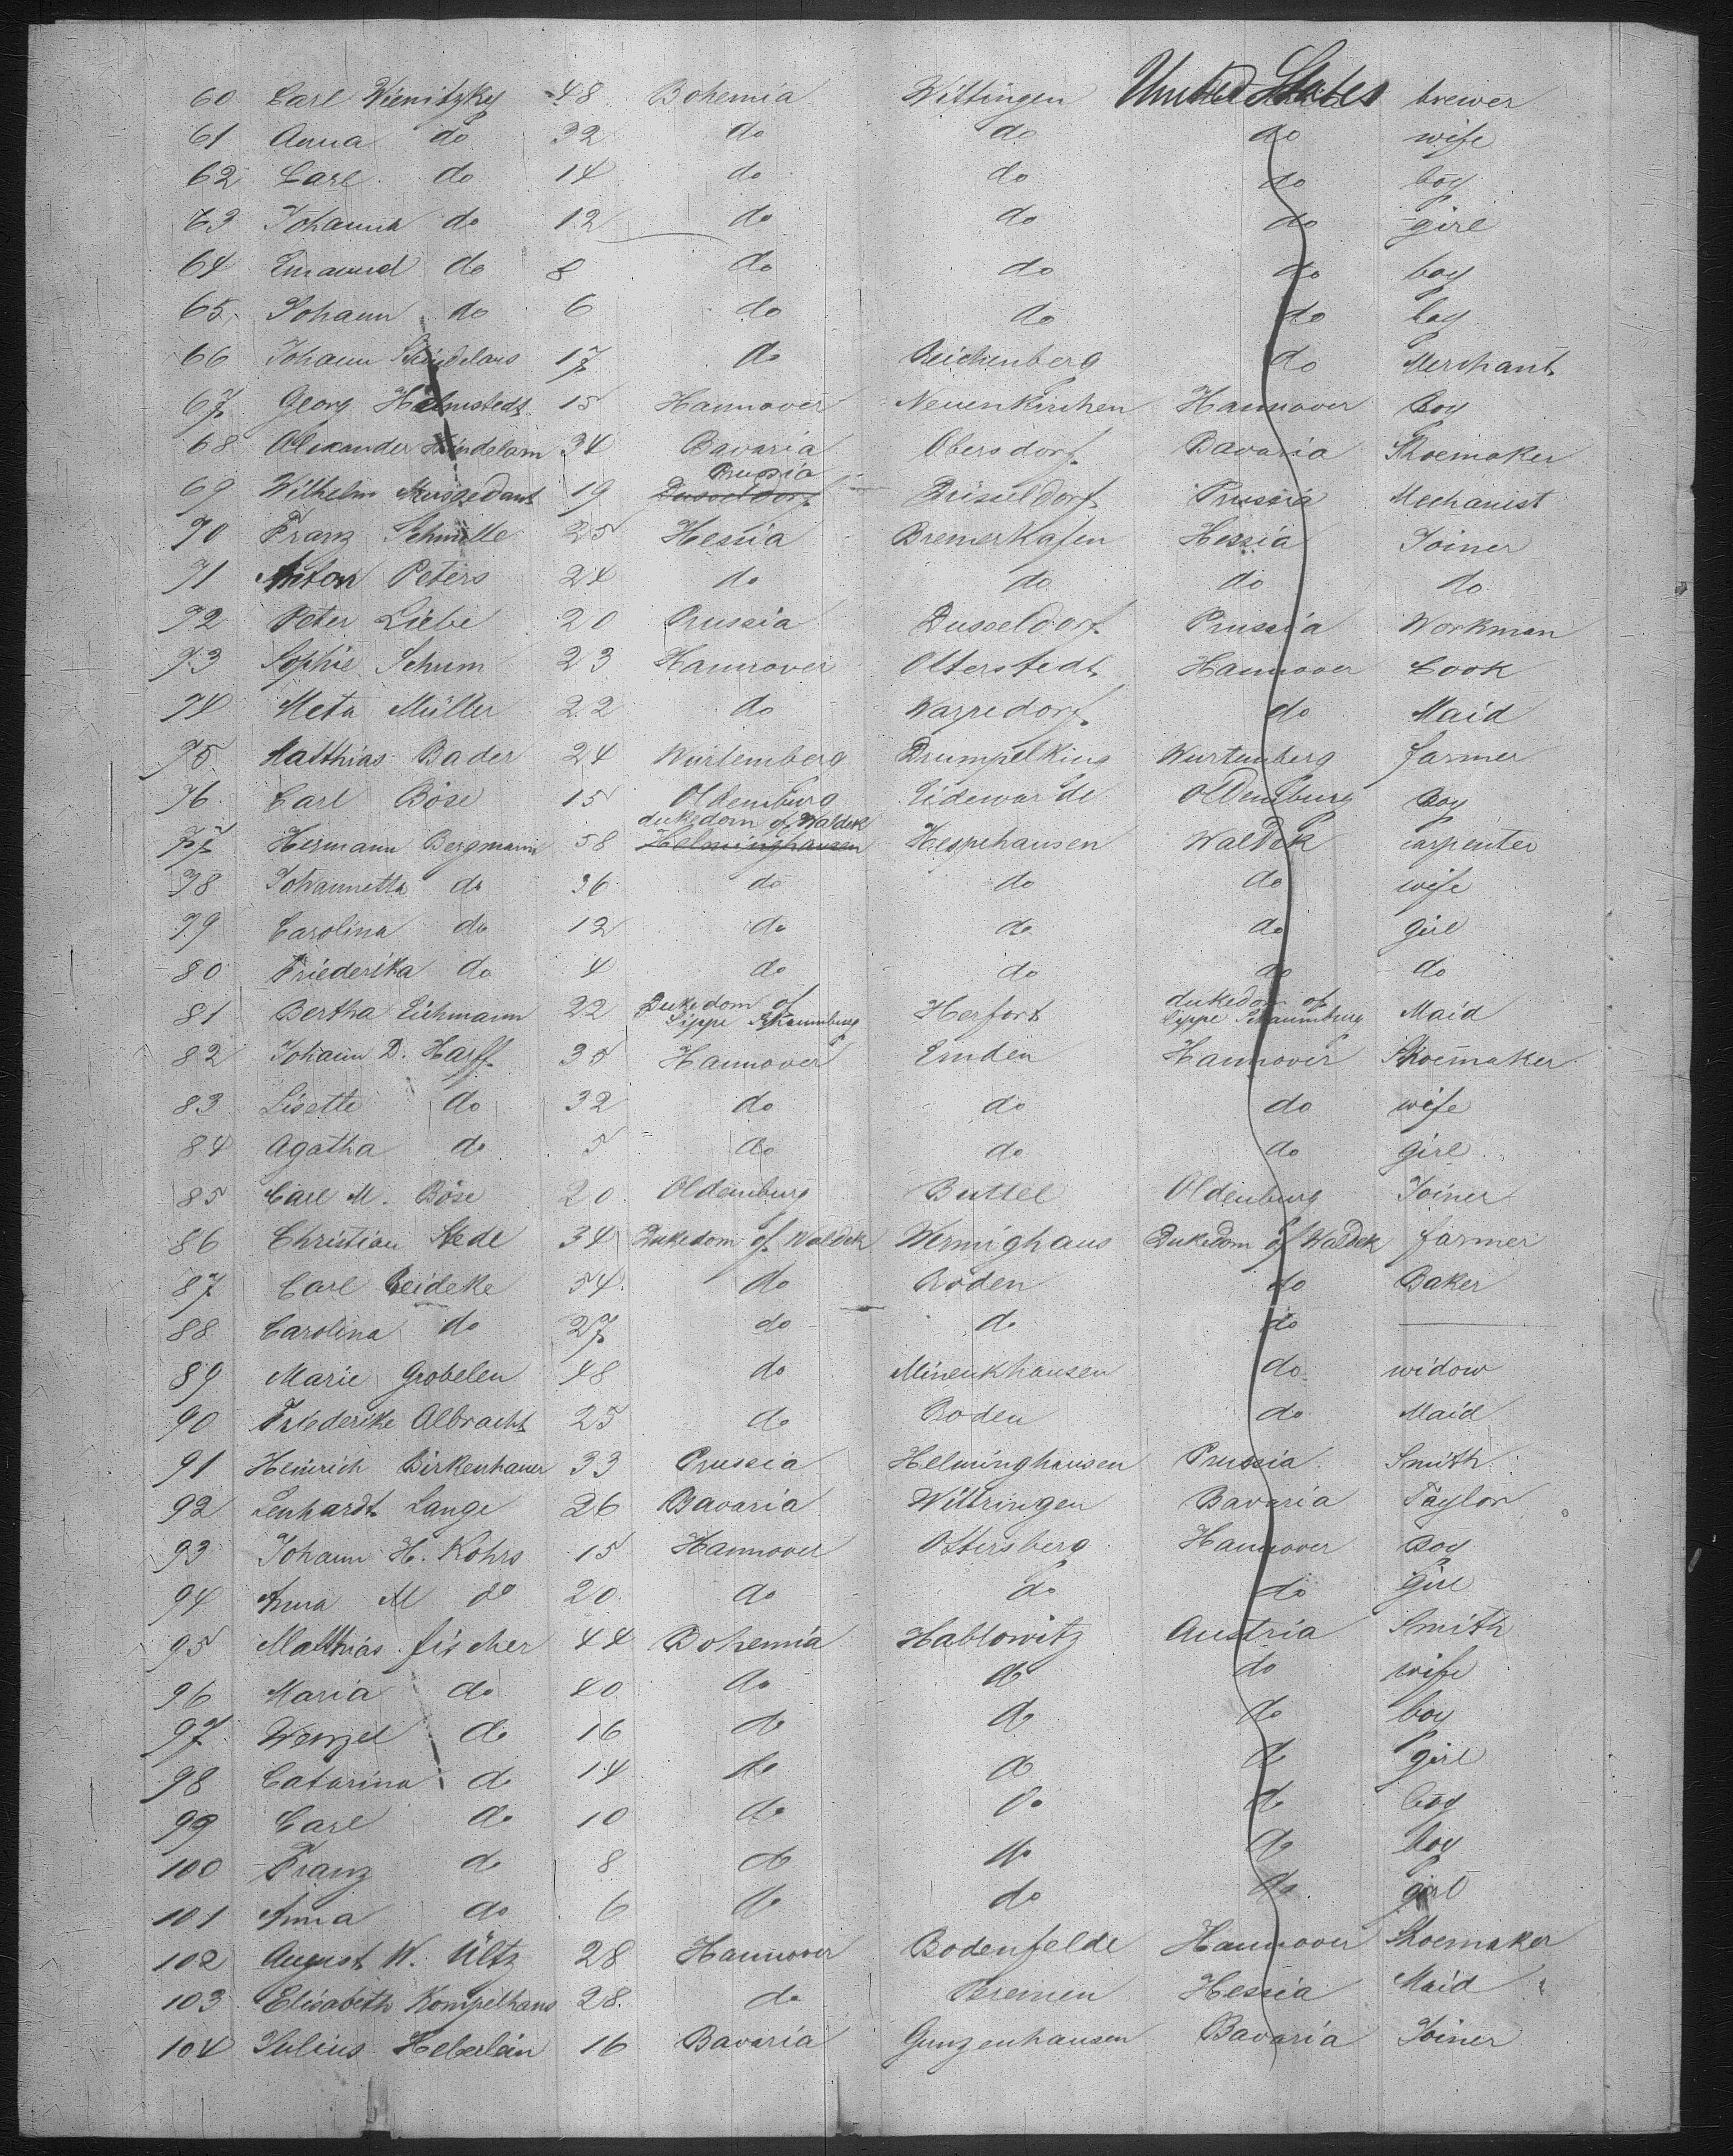 60 Carl Wienitzky 48 Bohemia Wittingen United States brewer
61 Anna do 32 do do do wife
62 Carl do 14 do do do boy
63 Johanna do 12 do do do girl
64 do 8 do do do boy
65 Johann do 6 do do do boy
66 Johann 17 do Reichenberg do Merchant
67 Georg Helmstedt 15 Hannover Neuenkirchen Hannover Boy
68 Alexander 34 Bavaria Obersdorf Bavaria Shoemaker
69 Wilhelm 19 Prussia Dusseldorf Düsseldorf Prussia Mechanist
70 Franz Schmille 25 Hessia Bremerhafen Hessia Joiner
71 Anton Peters 24 do do do do
72 Peter Liebe 20 Prussia Dusseldorf Prussia Workman
73 Sophie Schum 23 Hannover Otterstedt Hannover Cook
74 Meta Müller 22 do do Maid
75 Matthias Bader 24 Wurtemberg Wurtemberg farmer
76 Carl Böse 15 Oldenburg Oldenburg Boy
77 Hermann Bergmann 58 dukedom of Waldek Helminghausen Hespehausen Waldek carpenter
78 Johannetta do 36 do do do wife
79 Carolina do 12 do do do girl
80 Friederika do 4 do do do do
81 Bertha Eichmann 22 Dukedom of Lippe Schaumburg Herfort dukedom of Lippe Schaumburg Maid
82 Johann D. Harff 35 Hannover Emden Hannover Shoemaker
83 Lisette do 32 do do do wife
84 Agatha do 5 do do do girl
85 Carl M. Böse 20 Oldenburg Buttel Oldenburg Joiner
86 Christian Stede 34 Dukedom of Waldek Werminghaus Dukedom of Waldek farmer
87 Carl Reideke 54 do Roden do Baker
88 Carolina do 27 do do do
89 Marie Grobelen 48 do Minenkhausen do widow
90 Friederike Albracht 25 do Roden do Maid
91 Heinrich Birkenhauer 33 Prussia Helminghausen Prussia Smith
92 Lenhardt Lange 26 Bavaria Wittringen Bavaria Taylor
93 Johann H. Kohrs 15 Hannover Ottersberg Hannover Boy
94 Anna M do 20 do do do Girl
95 Matthias fischer 44 Bohemia Hablowitz Austria Smith
96 Maria do 40 do do do wife
97 Wenzel do 16 do do do boy
98 Catarina do 14 do do do girl
99 Carl do 10 do do do boy
100 Franz do 8 do do do boy
101 Anna do 6 do do do girl
102 August W. Ültz 28 Hannover Bodenfelde Hannover Shoemaker
103 Elisabeth Kompelhans 28 do Bremen Hessia Maid
104 Julius Heberlein 16 Bavaria Gunzenhausen Bavaria Joiner